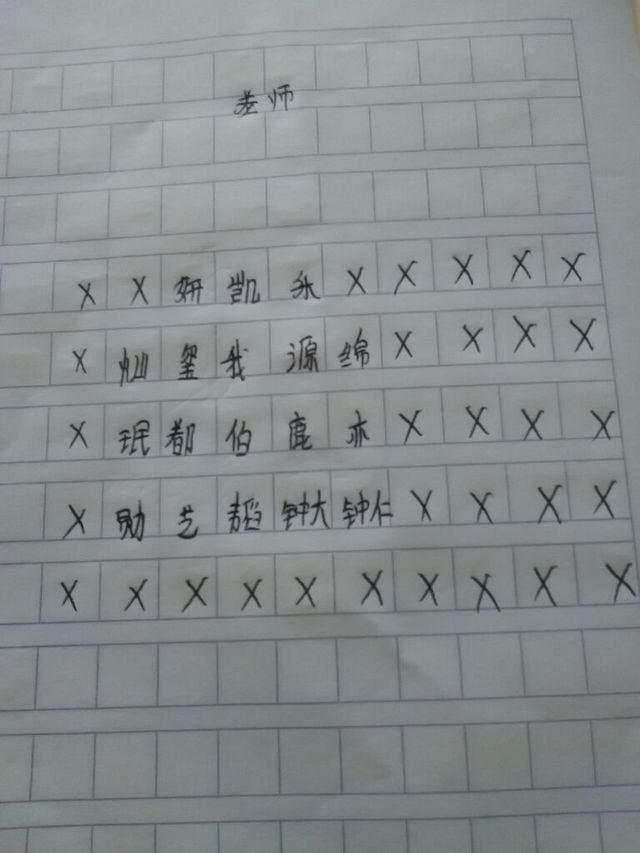 老师
X X 妍 凯 永 X X X X X
X 灿 玺 我 源 绵 X X X X
X 珉 都 伯 鹿 亦 X X X X
X 勋 艺 韬 钟大 钟仁 X X X X
X X X X X X X X X X